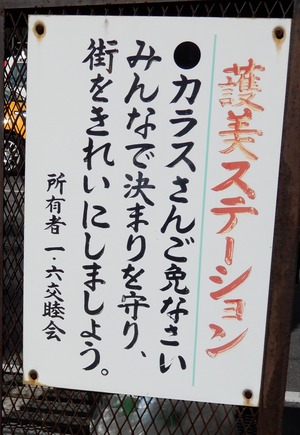 護美ステーション
●カラスさんご免なさい
みんなで決まりを守り、
街をきれいにしましょう。
所有者 一・六交睦会